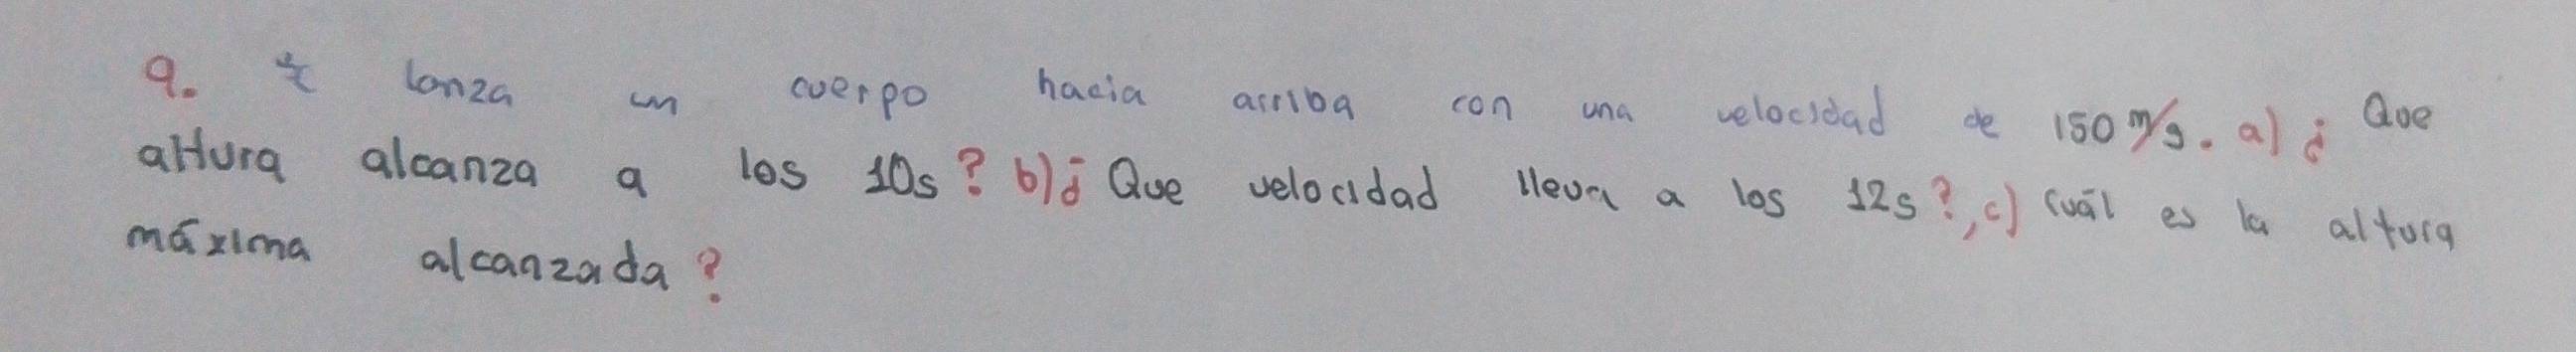 9. Se lanza un cuerpo hacia arriba con una velocidad de 150 m/s. a) ¿ Que
altura alcanza a los 10s? b) ¿ Que velocidad lleva a los 12s?, c) cuál es la altura
máxima alcanzada?